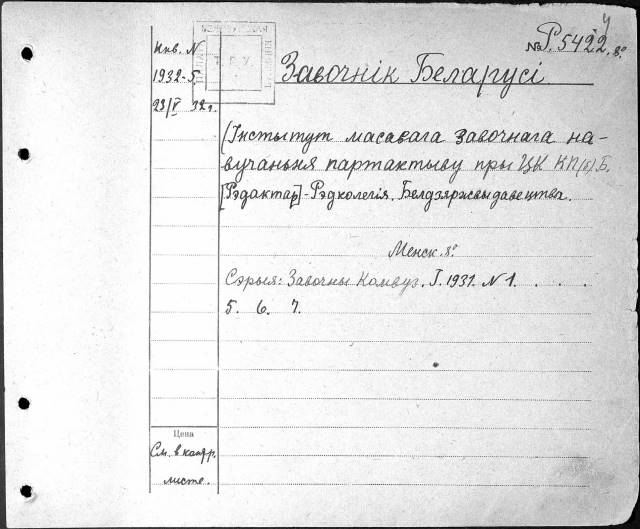 № Р.5422. 8º
Инв. N
1932-5.
23/V 32 г.
Т. Г. У.
Завочнік Беларусі
(Інстытут масавага завочнага на-
вучаньня партактыву пры ЦК КП(б)Б.
[Рэдактар]-Рэдколегія. Белдзяржвыдавецтва.
Менск. 8º
Сэрыя: Завочны Комвуз. I. 1931. N 1. . . .
5. 6. 7.
Цена
См. в кантр.
листе.